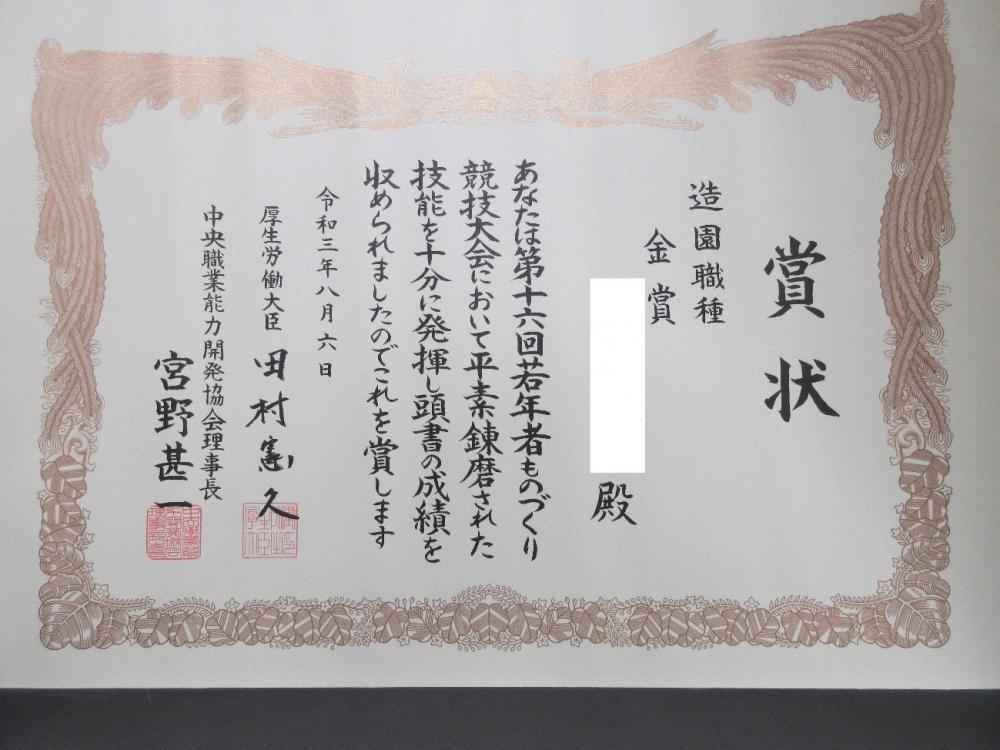 賞状
造園職種
金賞
殿
あなたは第十六回若年者ものづくり
競技大会において平素錬磨された
技能を十分に発揮し頭書の成績を
収められましたのでこれを賞します
令和三年八月六日
厚生労働大臣 田村憲久
中央職業能力開発協会理事長
宮野甚一